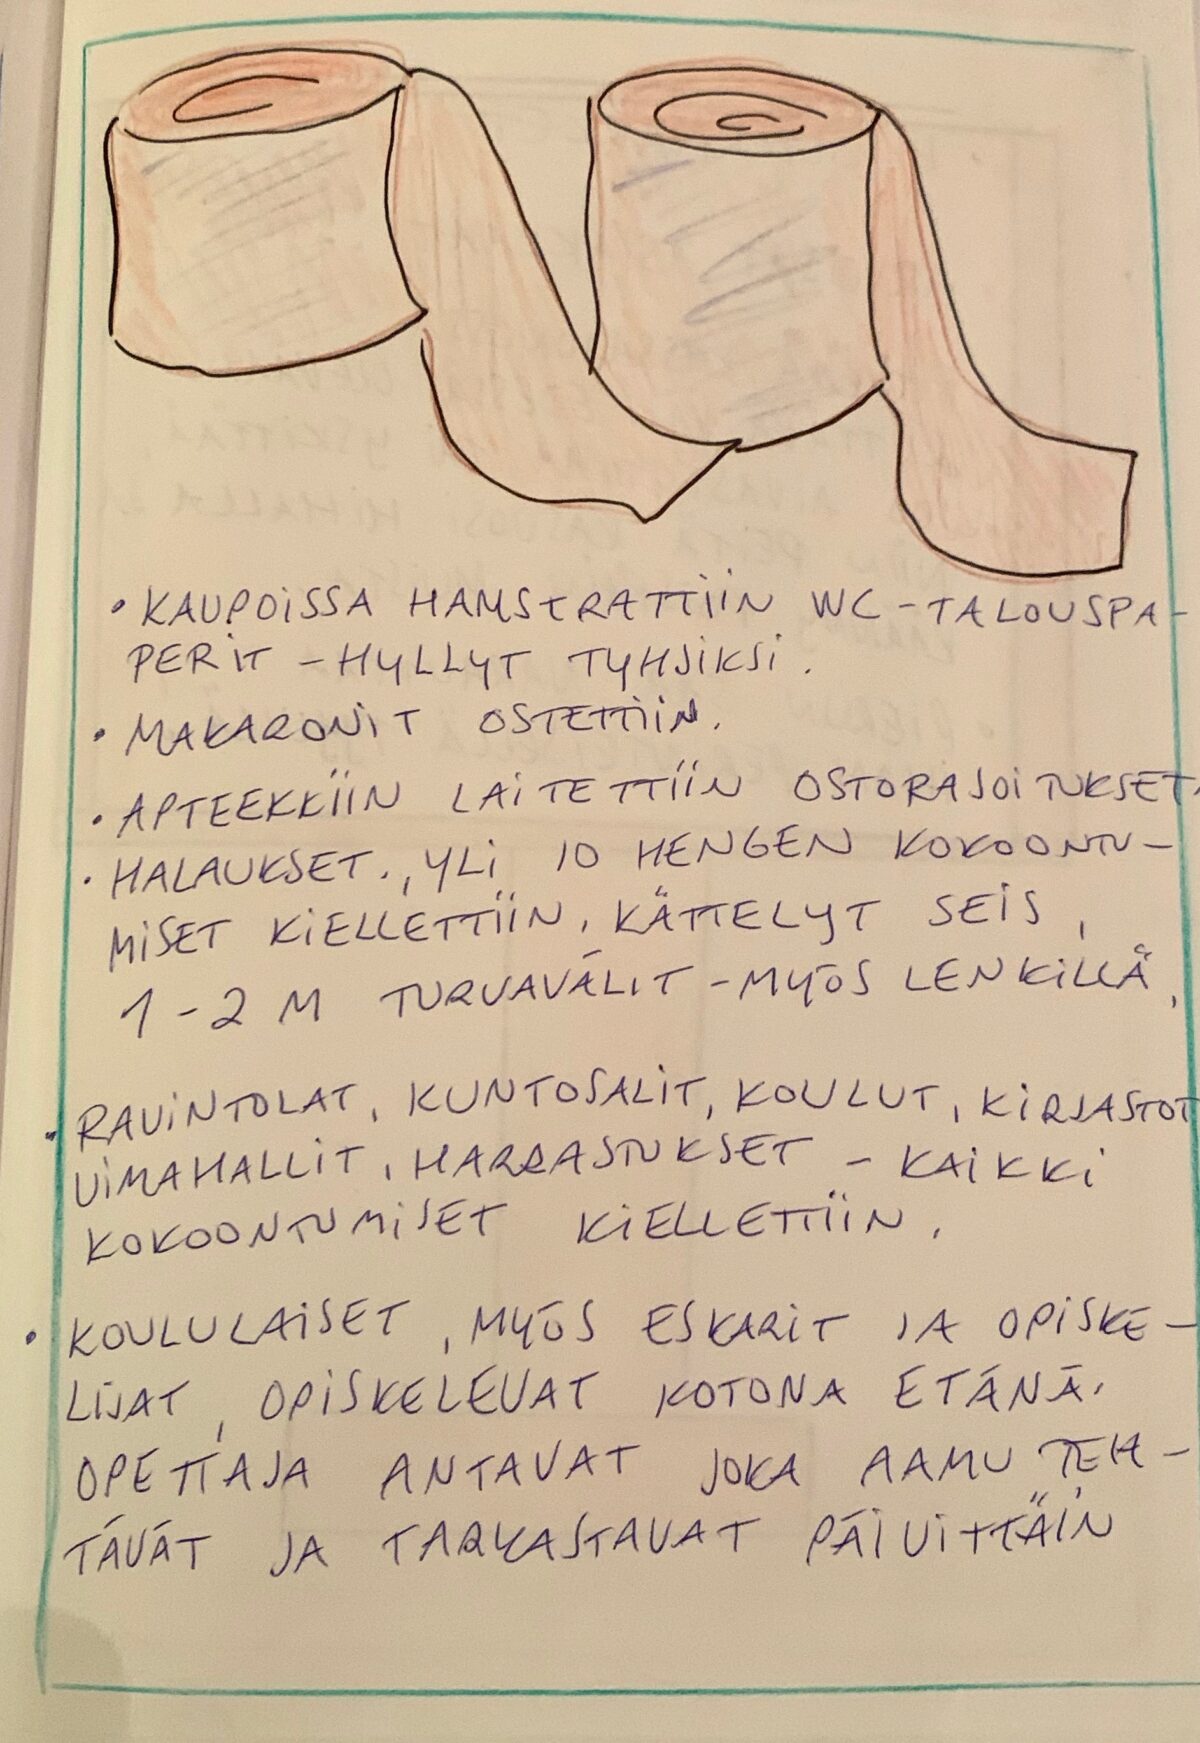 • KAUPOISSA HAMSTRATTIIN WC-TALOUSPA-
PERIT - HYLLYT TYHJIKSI.
• MAKARONIT OSTETTIIN.
• APTEEKKIIN LAITETTIIN OSTORAJOITUKSET.
• HALAUKSET., YLI 10 HENGEN KOKOONTU-
MISET KIELLETTIIN, KÄTTELYT SEIS,
1-2 M TURVAVÄLIT - MYÖS LENKILLÄ,
• RAVINTOLAT, KUNTOSALIT, KOULUT, KIRJASTOT
UIMAHALLIT, HARRASTUKSET - KAIKKI
KOKOONTUMISET KIELLETTIIN.
• KOULULAISET, MYÖS ESKARIT JA OPISKE-
LIJAT, OPISKELEVAT KOTONA ETÄNÄ.
OPETTAJA ANTAVAT JOKA AAMU TEH-
TÄVÄT JA TARKASTAVAT PÄIVITTÄIN